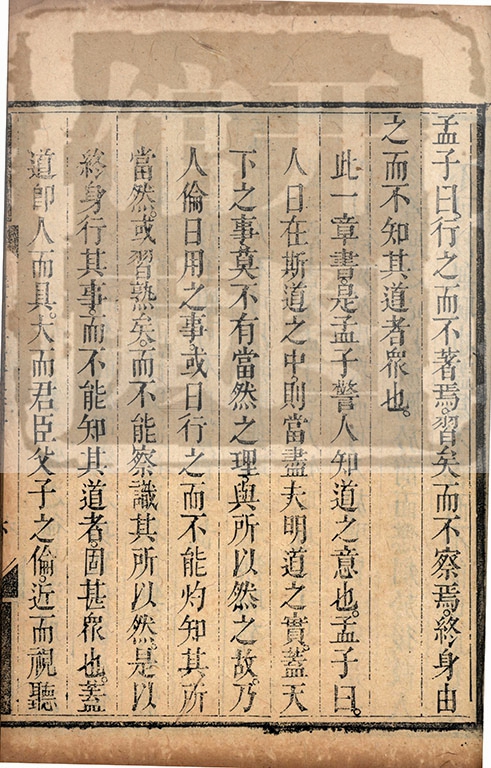 孟子曰。行之而不著焉。習矣而不察焉。終身由
之而不知其道者衆也。
此一章書。是孟子警人知道之意也。孟子曰。
人日在斯道之中。則當盡夫明道之實。蓋天
下之事。莫不有當然之理。與所以然之故。乃
人倫日用之事。或日行之而不能灼知其所
當然。或習熟矣。而不能察識其所以然。是以
終身行其事。而不能知其道者。固甚衆也。蓋
道卽人而具。大而君臣父子之倫。近而視聽